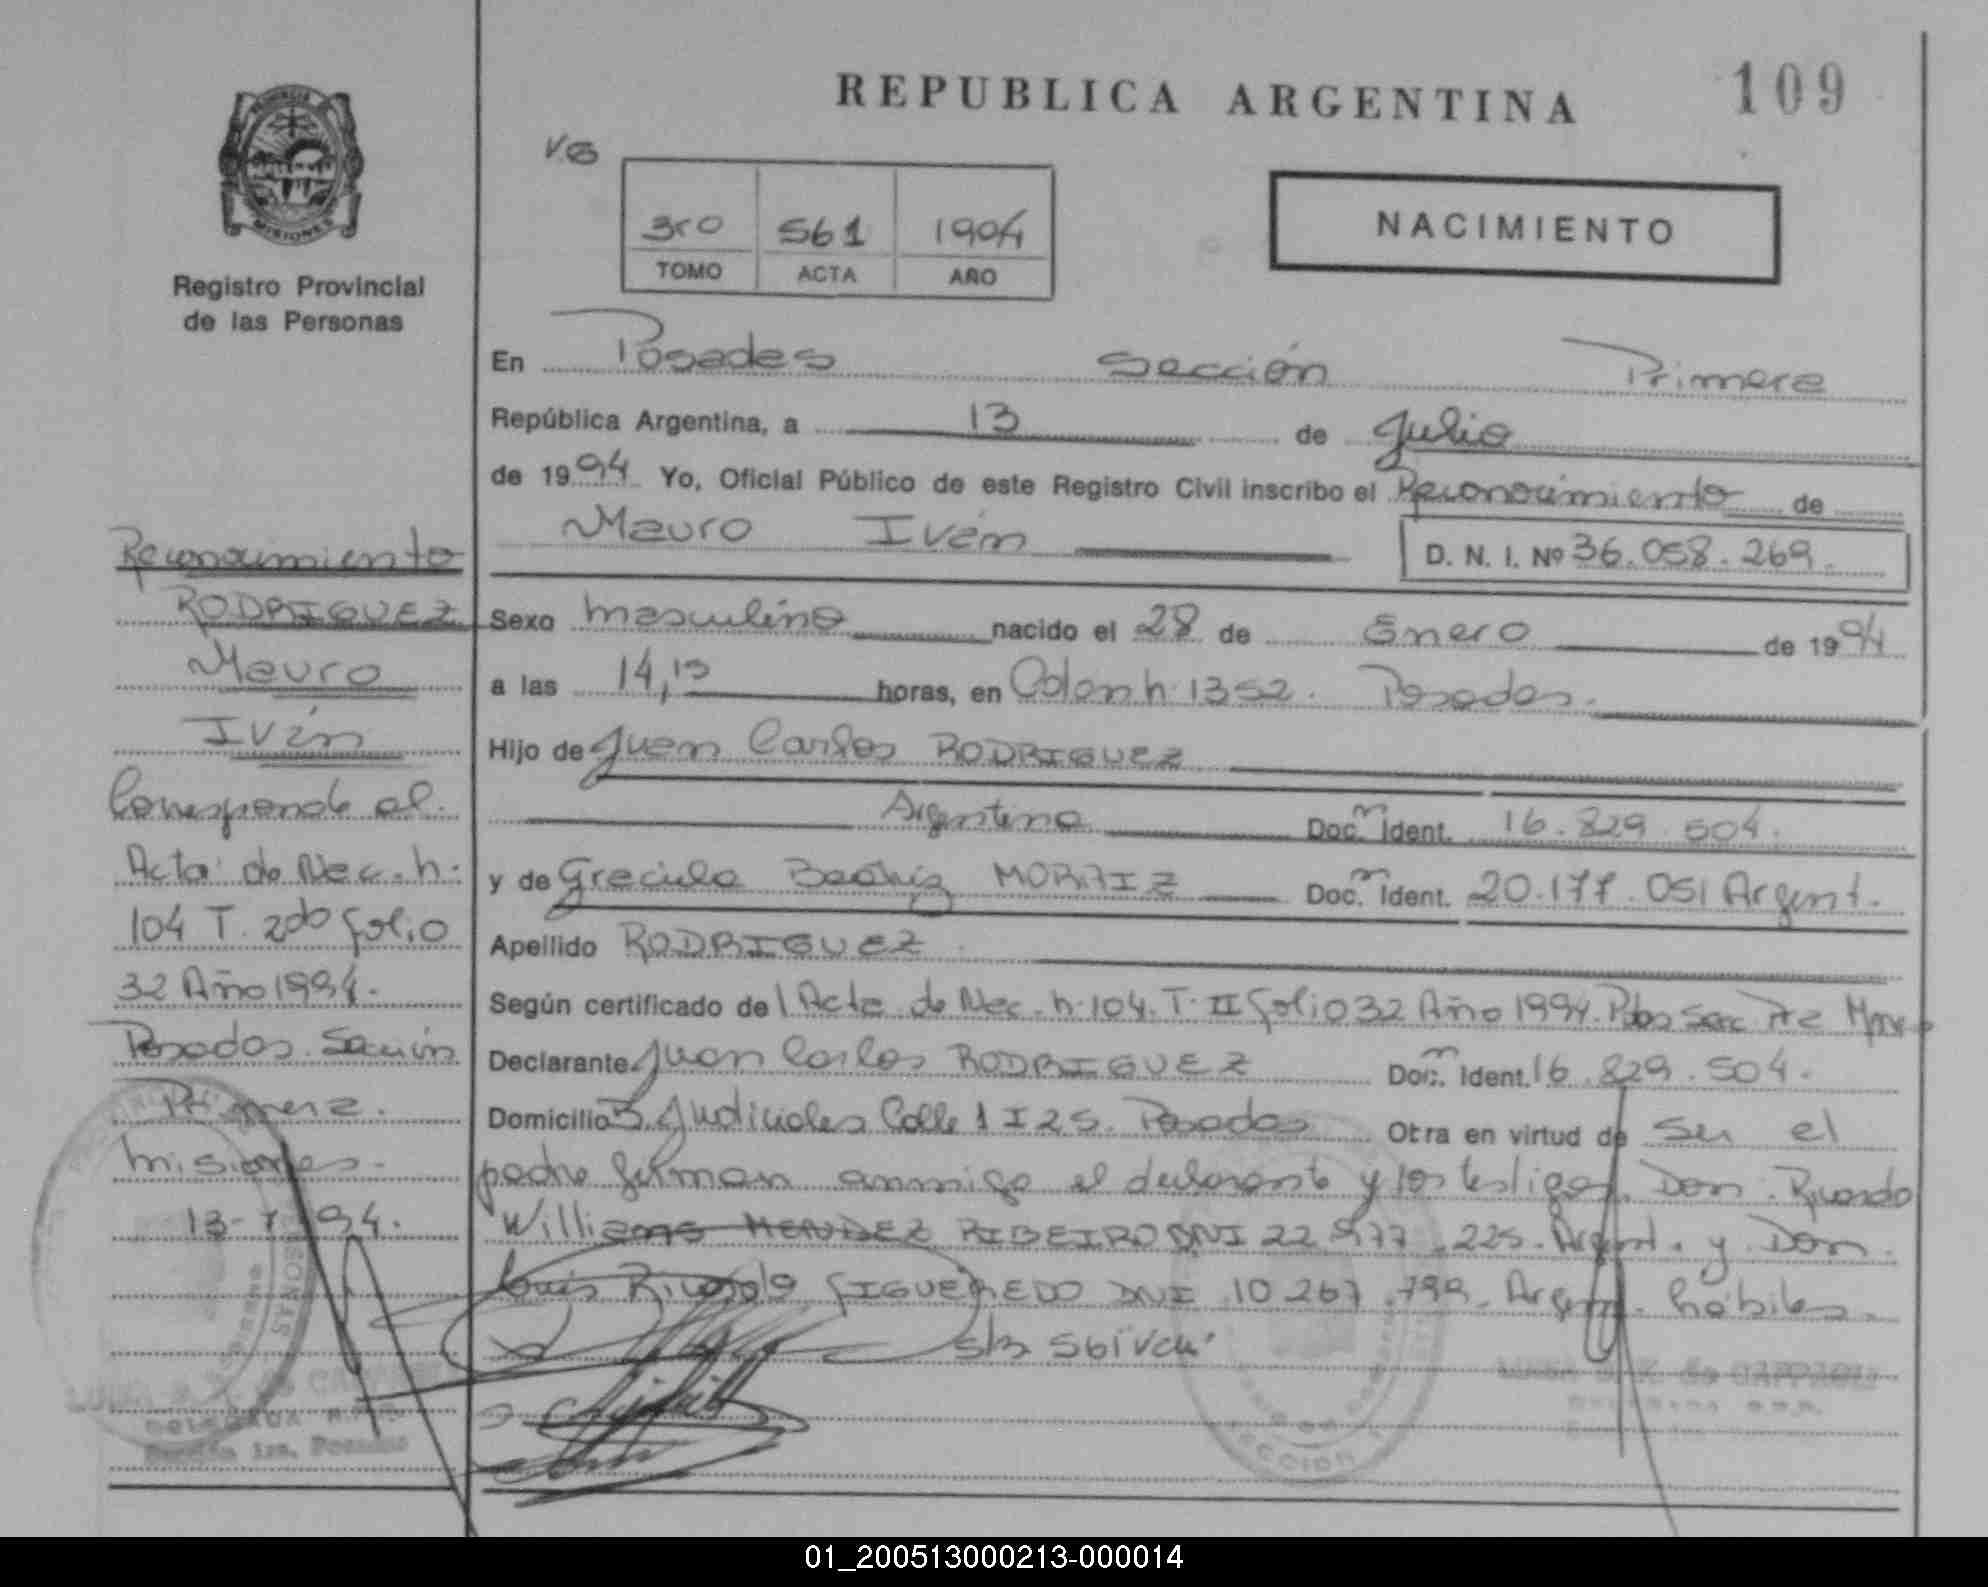 REPUBLICA ARGENTINA
109
PROVINCIA
MISIONES
Registro Provincial
de las Personas
V.B
3ro 561 1994
TOMO ACTA AÑO
NACIMIENTO
En Posadas Sección Primera
República Argentina, a 13 de Julio
de 1994 Yo, Oficial Público de este Registro Civil inscribo el Reconocimiento de
Mauro Iván D. N. I. Nº 36.058.269.
Sexo masculino nacido el 28 de Enero de 1994
a las 14,15 horas, en Colon n. 1352. Posadas.
Hijo de Juan Carlos RODRIGUEZ
Argentino Doc. Ident. 16.829.504.
y de Graciela Beatriz MORAIZ Doc. Ident. 20.177.051 Argent.
Apellido RODRIGUEZ
Según certificado de l Acta de Nac. n. 104. T. II folio 32 Año 1994. Pdas Secc
Declarante Juan Carlos RODRIGUEZ Doc. Ident. 16.829.504.
Domicilio B. Judiciales Calle 1 I 25. Posadas Otra en virtud de ser el
padre firman conmigo el declarante y los testigos Don. Ricardo
Williams MENDEZ RIBEIRO DNI 22.577.225. Argent. y Don.
Luis Ricardo FIGUEREDO DNI 10.267.799. Argent. hábiles.
s/r 561 Vale
Reconocimiento
RODRIGUEZ
Mauro
Iván
Corresponde al
Acta de Nac. n.
104 T. 2do folio
32 Año 1994.
Posadas. Sección
Primera.
Misiones.
13-7-94.
DELEGADA R.P.P.
Sección 1ra. Posadas
SECCION
01_200513000213-000014